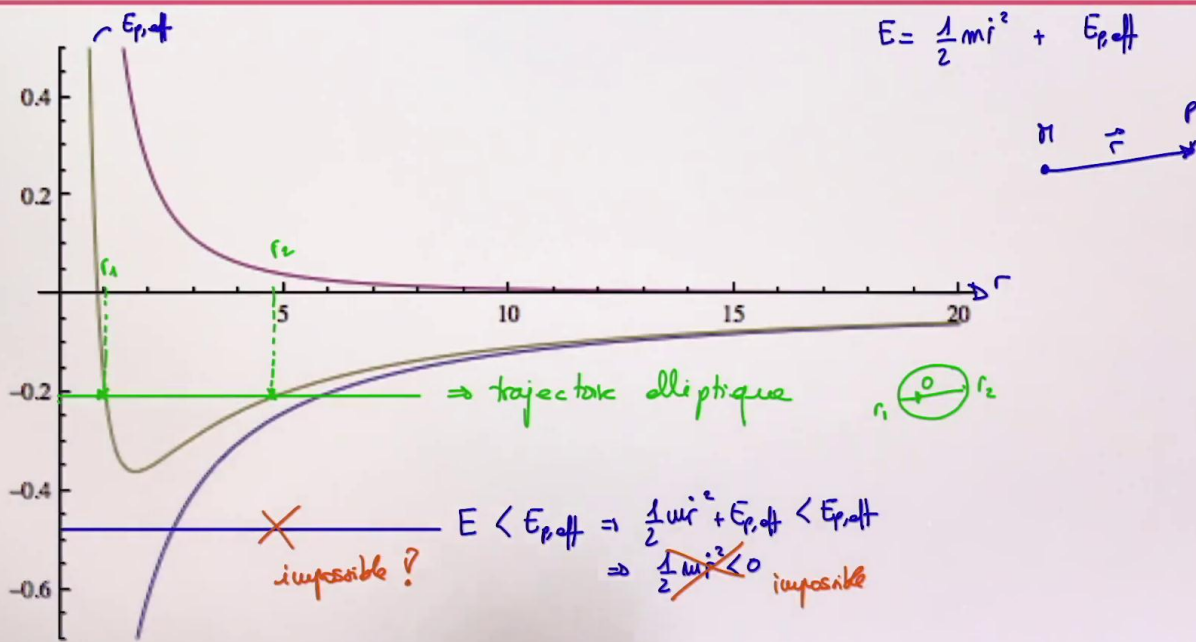 E_{p,eff}
E = \frac{1}{2} m\dot{r}^2 + E_{p,eff}
0.4
M \vec{r} P
0.2
r_1 r_2
r
5 10 15 20
-0.2
⇒ trajectoire elliptique
r_1 O r_2
-0.4
E < E_{p,eff} ⇒ \frac{1}{2} m\dot{r}^2 + E_{p,eff} < E_{p,eff}
impossible ?
⇒ \frac{1}{2} m\dot{r}^2 < 0 impossible
-0.6